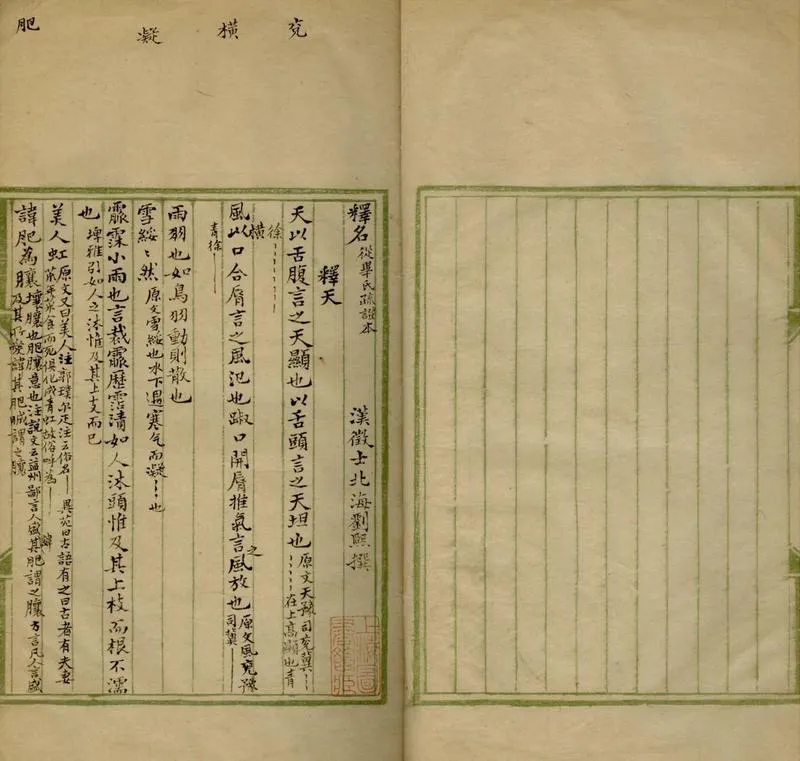 兗
橫
凝
肥
釋名 從畢氏疏證本 漢徵士北海劉熙撰
釋天
天以舌腹言之天顯也以舌頭言之天坦也 原文天豫司兗冀 在上高顯也青
徐
風以口合脣言之風氾也踧口開脣推氣言之風放也 原文風兗豫司冀
橫
青徐
雨羽也如鳥羽動則散也
雪綏〻然 原文雪綏也水下遇寒气而凝〻〻也
霢霂小雨也言裁霢歷霑漬如人沐頭惟及其上枝而根不濡
也 埤雅引如人之沐惟及其上支而已
美人虹 原文又曰美人注郭璞尔疋注云俗名 異苑曰古語有之曰古者有夫妻
荒年菜食而死俱化成青虹故俗呼為
諱肥為䑋 壤䑋也肥䑋意也注說文云益州鄙言人盛其肥謂之䑋 方言凡人言盛
及其所愛諱其肥晠謂之䑋
諱